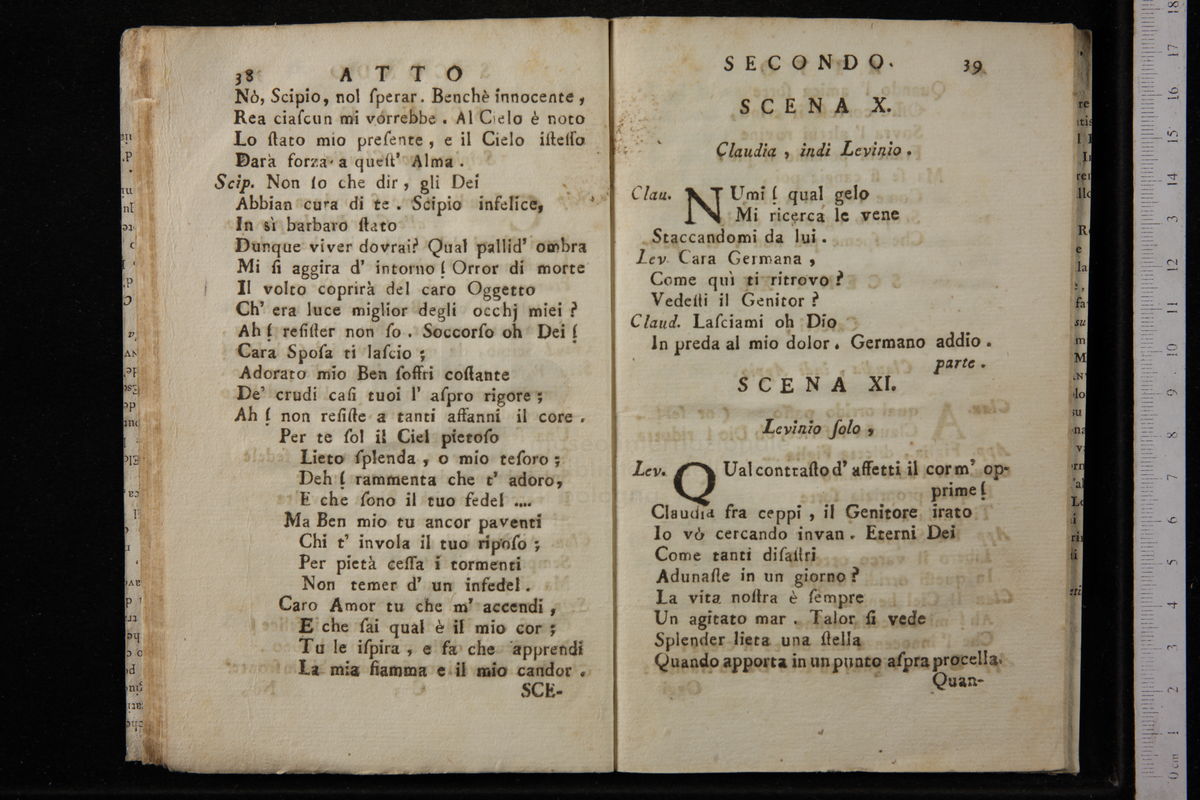 38 ATTO
Nò, Scipio, nol ſperar. Benchè innocente,
Rea ciaſcun mi vorrebbe. Al Cielo è noto
Lo ſtato mio preſente, e il Cielo iſteſſo
Darà forza a queſt' Alma.
Scip. Non ſo che dir, gli Dei
Abbian cura di te. Scipio infelice,
In sì barbaro ſtato
Dunque viver dovrai? Qual pallid' ombra
Mi ſi aggira d' intorno! Orror di morte
Il volto coprirà del caro Oggetto
Ch' era luce miglior degli occhj miei?
Ah! reſiſter non ſo. Soccorſo oh Dei!
Cara Spoſa ti laſcio;
Adorato mio Ben ſoffri coſtante
De' crudi caſi tuoi l' aſpro rigore;
Ah! non reſiſte a tanti affanni il core.
Per te ſol il Ciel pietoſo
Lieto ſplenda, o mio teſoro;
Deh! rammenta che t' adoro,
E che ſono il tuo fedel ....
Ma Ben mio tu ancor paventi
Chi t' invola il tuo ripoſo;
Per pietà ceſſa i tormenti
Non temer d' un infedel.
Caro Amor tu che m' accendi,
E che ſai qual è il mio cor;
Tu le iſpira, e fa che apprendi
La mia fiamma e il mio candor.
SCE-
SECONDO. 39
SCENA X.
Claudia, indi Levinio.
Clau. NUmi! qual gelo
Mi ricerca le vene
Staccandomi da lui.
Lev. Cara Germana,
Come quì ti ritrovo?
Vedeſti il Genitor?
Claud. Laſciami oh Dio
In preda al mio dolor. Germano addio.
parte.
SCENA XI.
Levinio ſolo,
Lev. QUal contraſto d' affetti il cor m' op-
prime!
Claudia fra ceppi, il Genitore irato
Io vò cercando invan. Eterni Dei
Come tanti diſaſtri
Adunaſte in un giorno?
La vita noſtra è ſempre
Un agitato mar. Talor ſi vede
Splender lieta una ſtella
Quando apporta in un punto aſpra procella.
Quan-